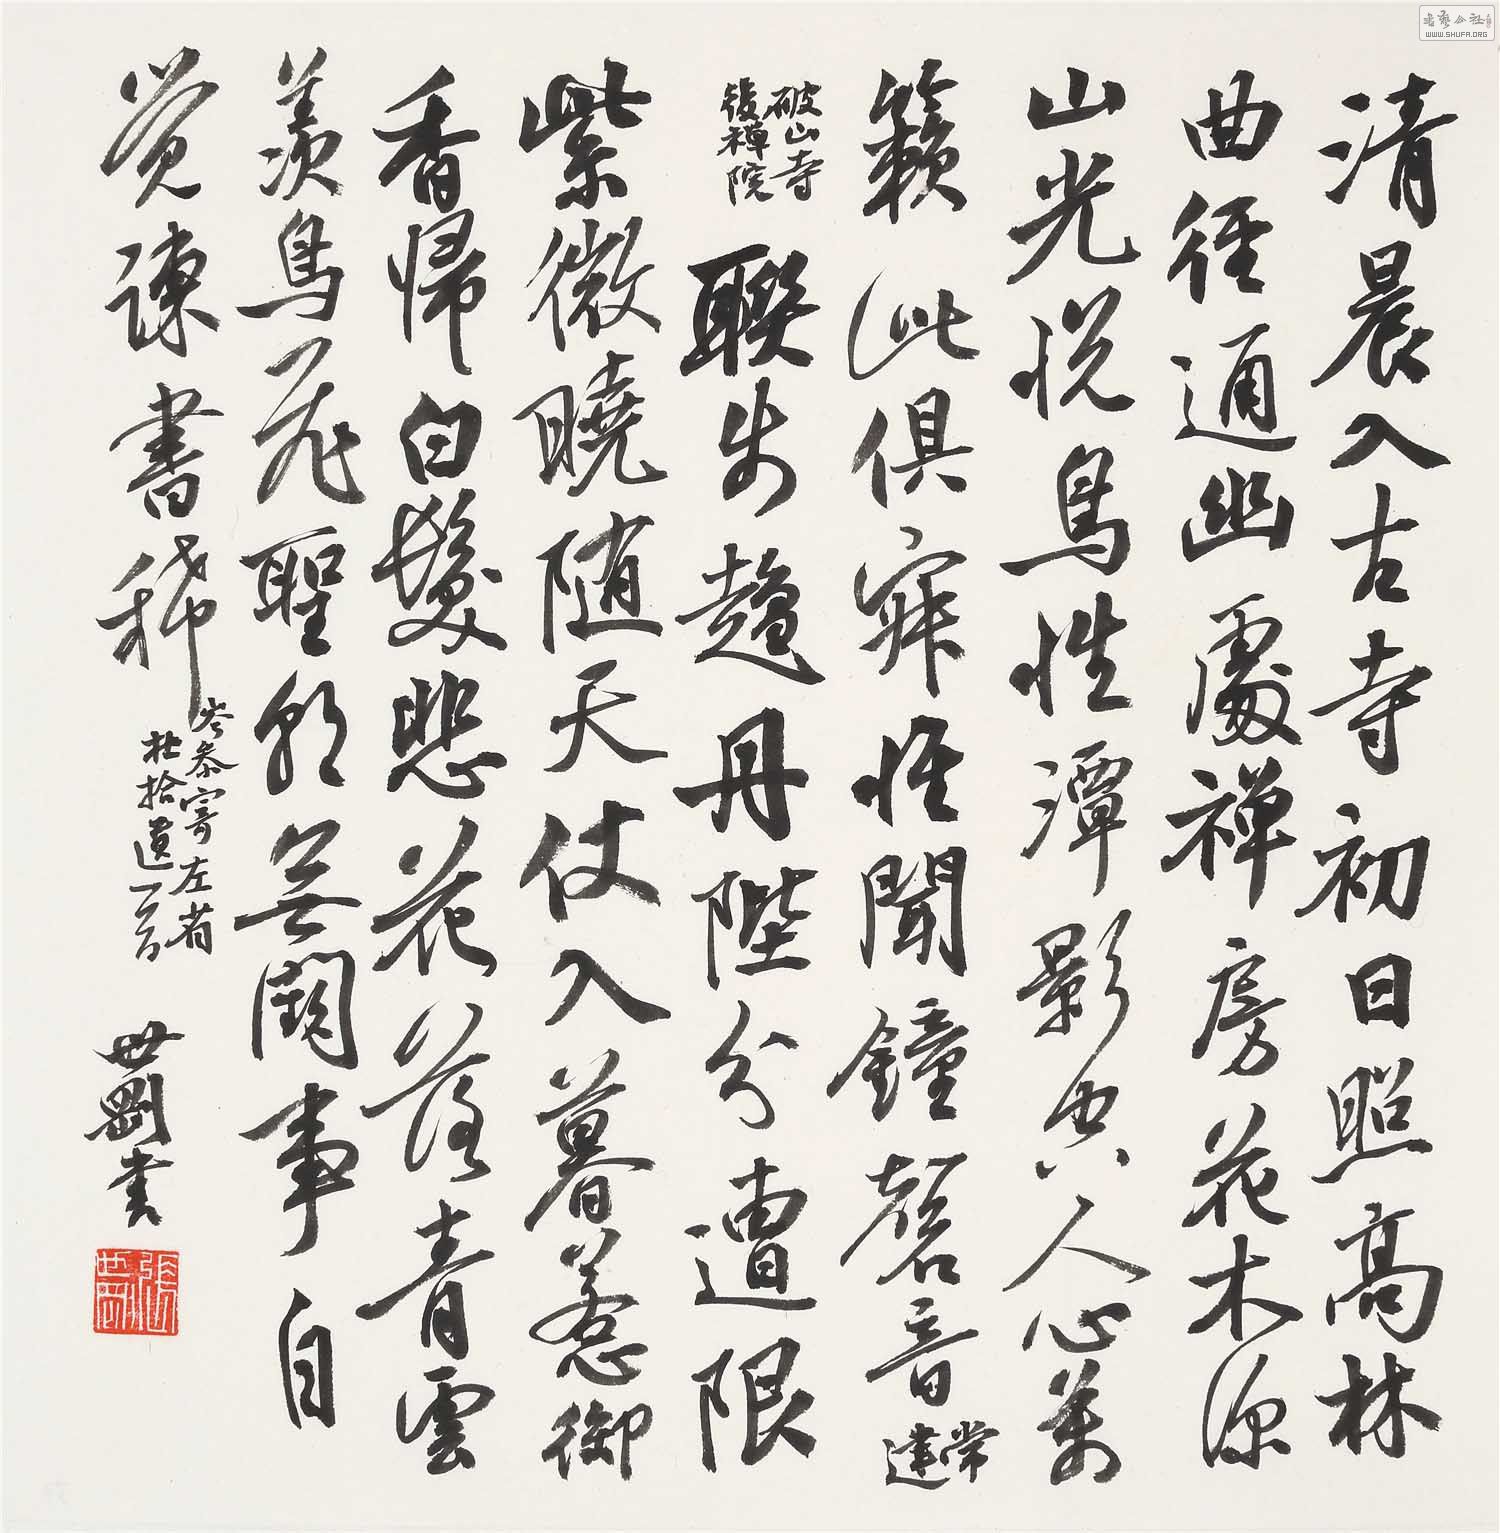 清晨入古寺初日照高林
曲徑通幽處禅房花木深
山光悦鳥性潭影空人心萬
籟此俱寂惟聞鐘磬音 常建
破山寺
後禅院
聯步趨丹陛分遭限
紫微曉随天仗入暮惹御
香帰白髮悲花落青雲
羨鳥飛聖朝無闕事自
覺諫書稀
岑參寄左省
杜拾遺一首
世剛書
張世剛
書藝公社
WWW.SHUFA.ORG